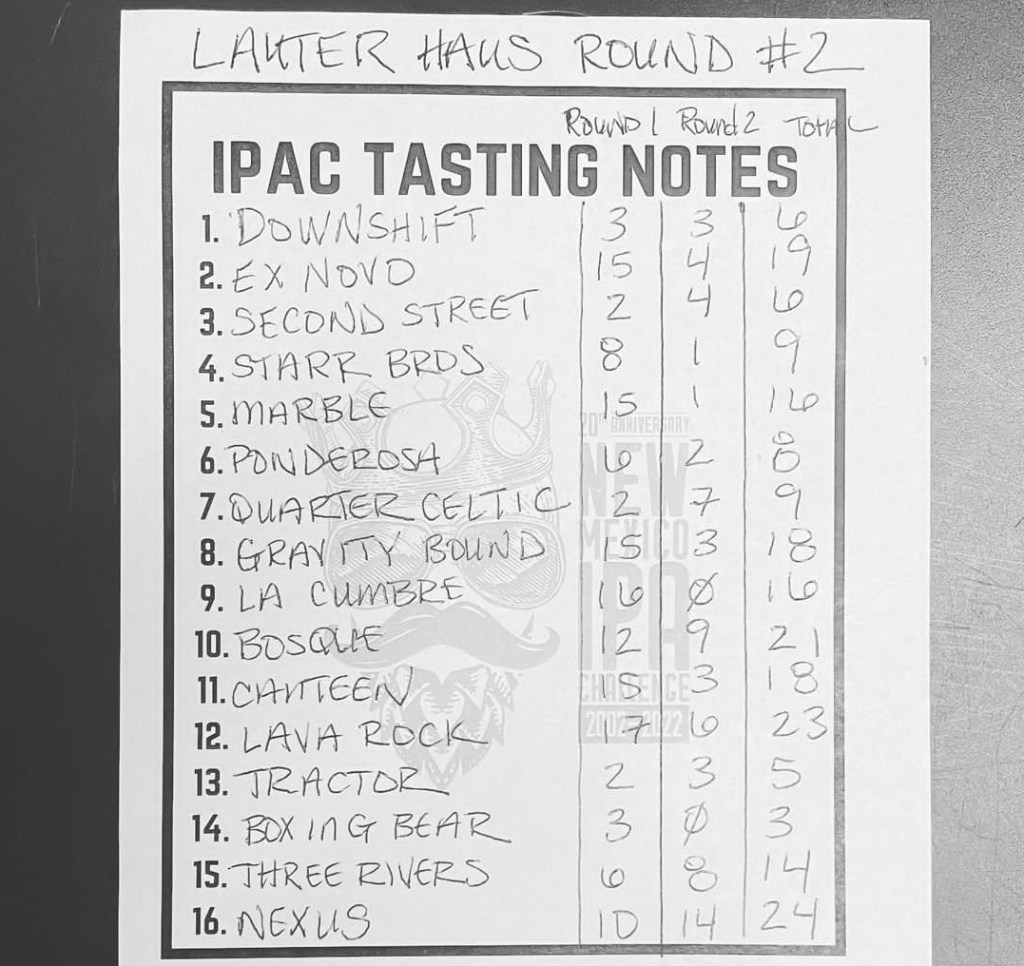 LAUTER HAUS ROUND #2
Round 1 Round 2 Total
IPAC TASTING NOTES
1. DOWNSHIFT 3 3 6
2. EX NOVO 15 4 19
3. SECOND STREET 2 4 6
4. STARR BROS 8 1 9
5. MARBLE 15 1 16
6. PONDEROSA 6 2 8
7. QUARTER CELTIC 2 7 9
8. GRAVITY BOUND 15 3 18
9. LA CUMBRE 16 Ø 16
10. BOSQUE 12 9 21
11. CANTEEN 15 3 18
12. LAVA ROCK 17 6 23
13. TRACTOR 2 3 5
14. BOXING BEAR 3 Ø 3
15. THREE RIVERS 6 8 14
16. NEXUS 10 14 24
20TH ANNIVERSARY
NEW
MEXICO
IPA
CHALLENGE
2002-2022